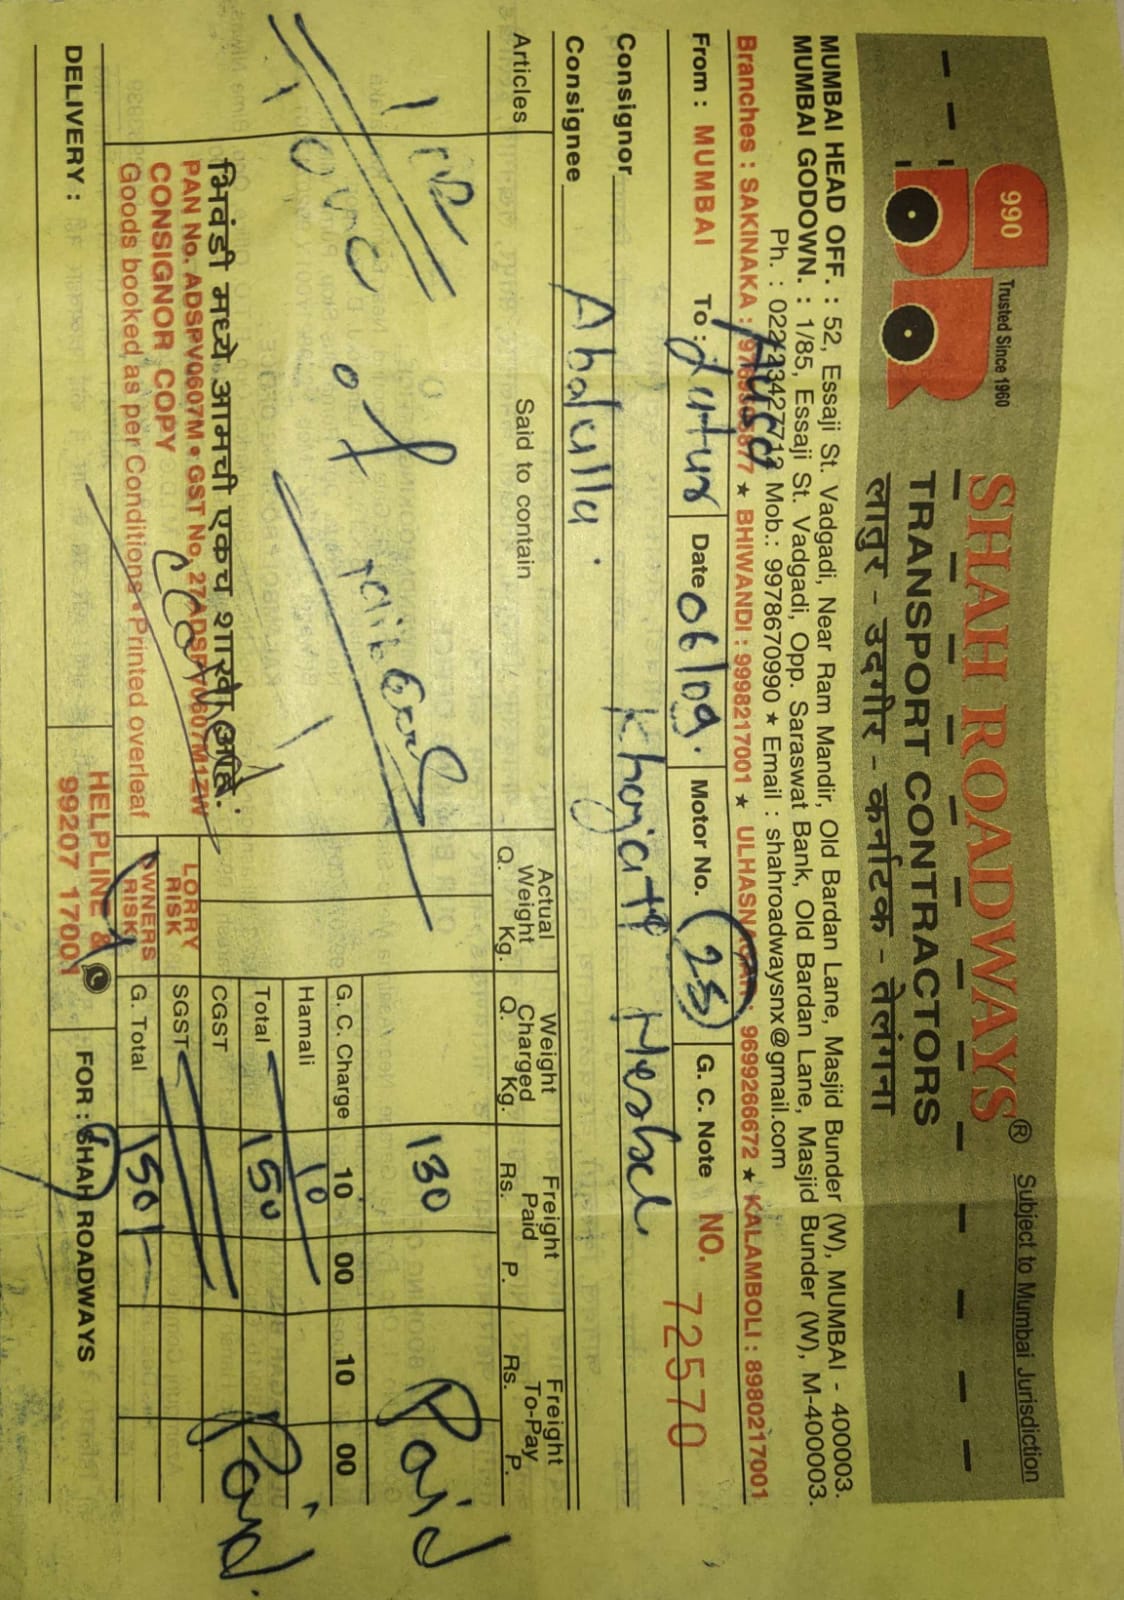 990
Trusted Since 1960
Subject to Mumbai Jurisdiction
SHAH ROADWAYS®
TRANSPORT CONTRACTORS
लातुर - उदगीर - कर्नाटक - तेलंगना
MUMBAI HEAD OFF. : 52, Essaji St. Vadgadi, Near Ram Mandir, Old Bardan Lane, Masjid Bunder (W), MUMBAI - 400003.
MUMBAI GODOWN. : 1/85, Essaji St. Vadgadi, Opp. Saraswat Bank, Old Bardan Lane, Masjid Bunder (W), M-400003.
Ph. : 022-23427712 Mob.: 9978670990 ★ Email : shahroadwaysnx@gmail.com
Branches : SAKINAKA : ★ BHIWANDI : 9998217001 ★ ULHASNAGAR : 9699266672 ★ KALAMBOLI : 8980217001
From : MUMBAI To : Latur Date 06/09. Motor No. 25 G. C. Note NO. 72570
Consignor Khajatt
Consignee Abdulla.
Articles Said to contain Actual Weight Q. Kg. Weight Charged Q. Kg. Freight Paid Rs. P. Freight To-Pay Rs. P.
1 of 130 Paid
G. C. Charge 10 00 10 00
Hamali 10
Total 150 Paid.
CGST
SGST
G. Total 150/-
भिवंडी मध्ये आमची एकच शाखा आहे.
PAN No. ADSPV0607M • GST No. 27ADSPV0607M1ZW
CONSIGNOR COPY
Goods booked, as per Conditions • Printed overleaf
LORRY RISK
OWNERS RISK
DELIVERY :
HELPLINE &
99207 17001
FOR : SHAH ROADWAYS